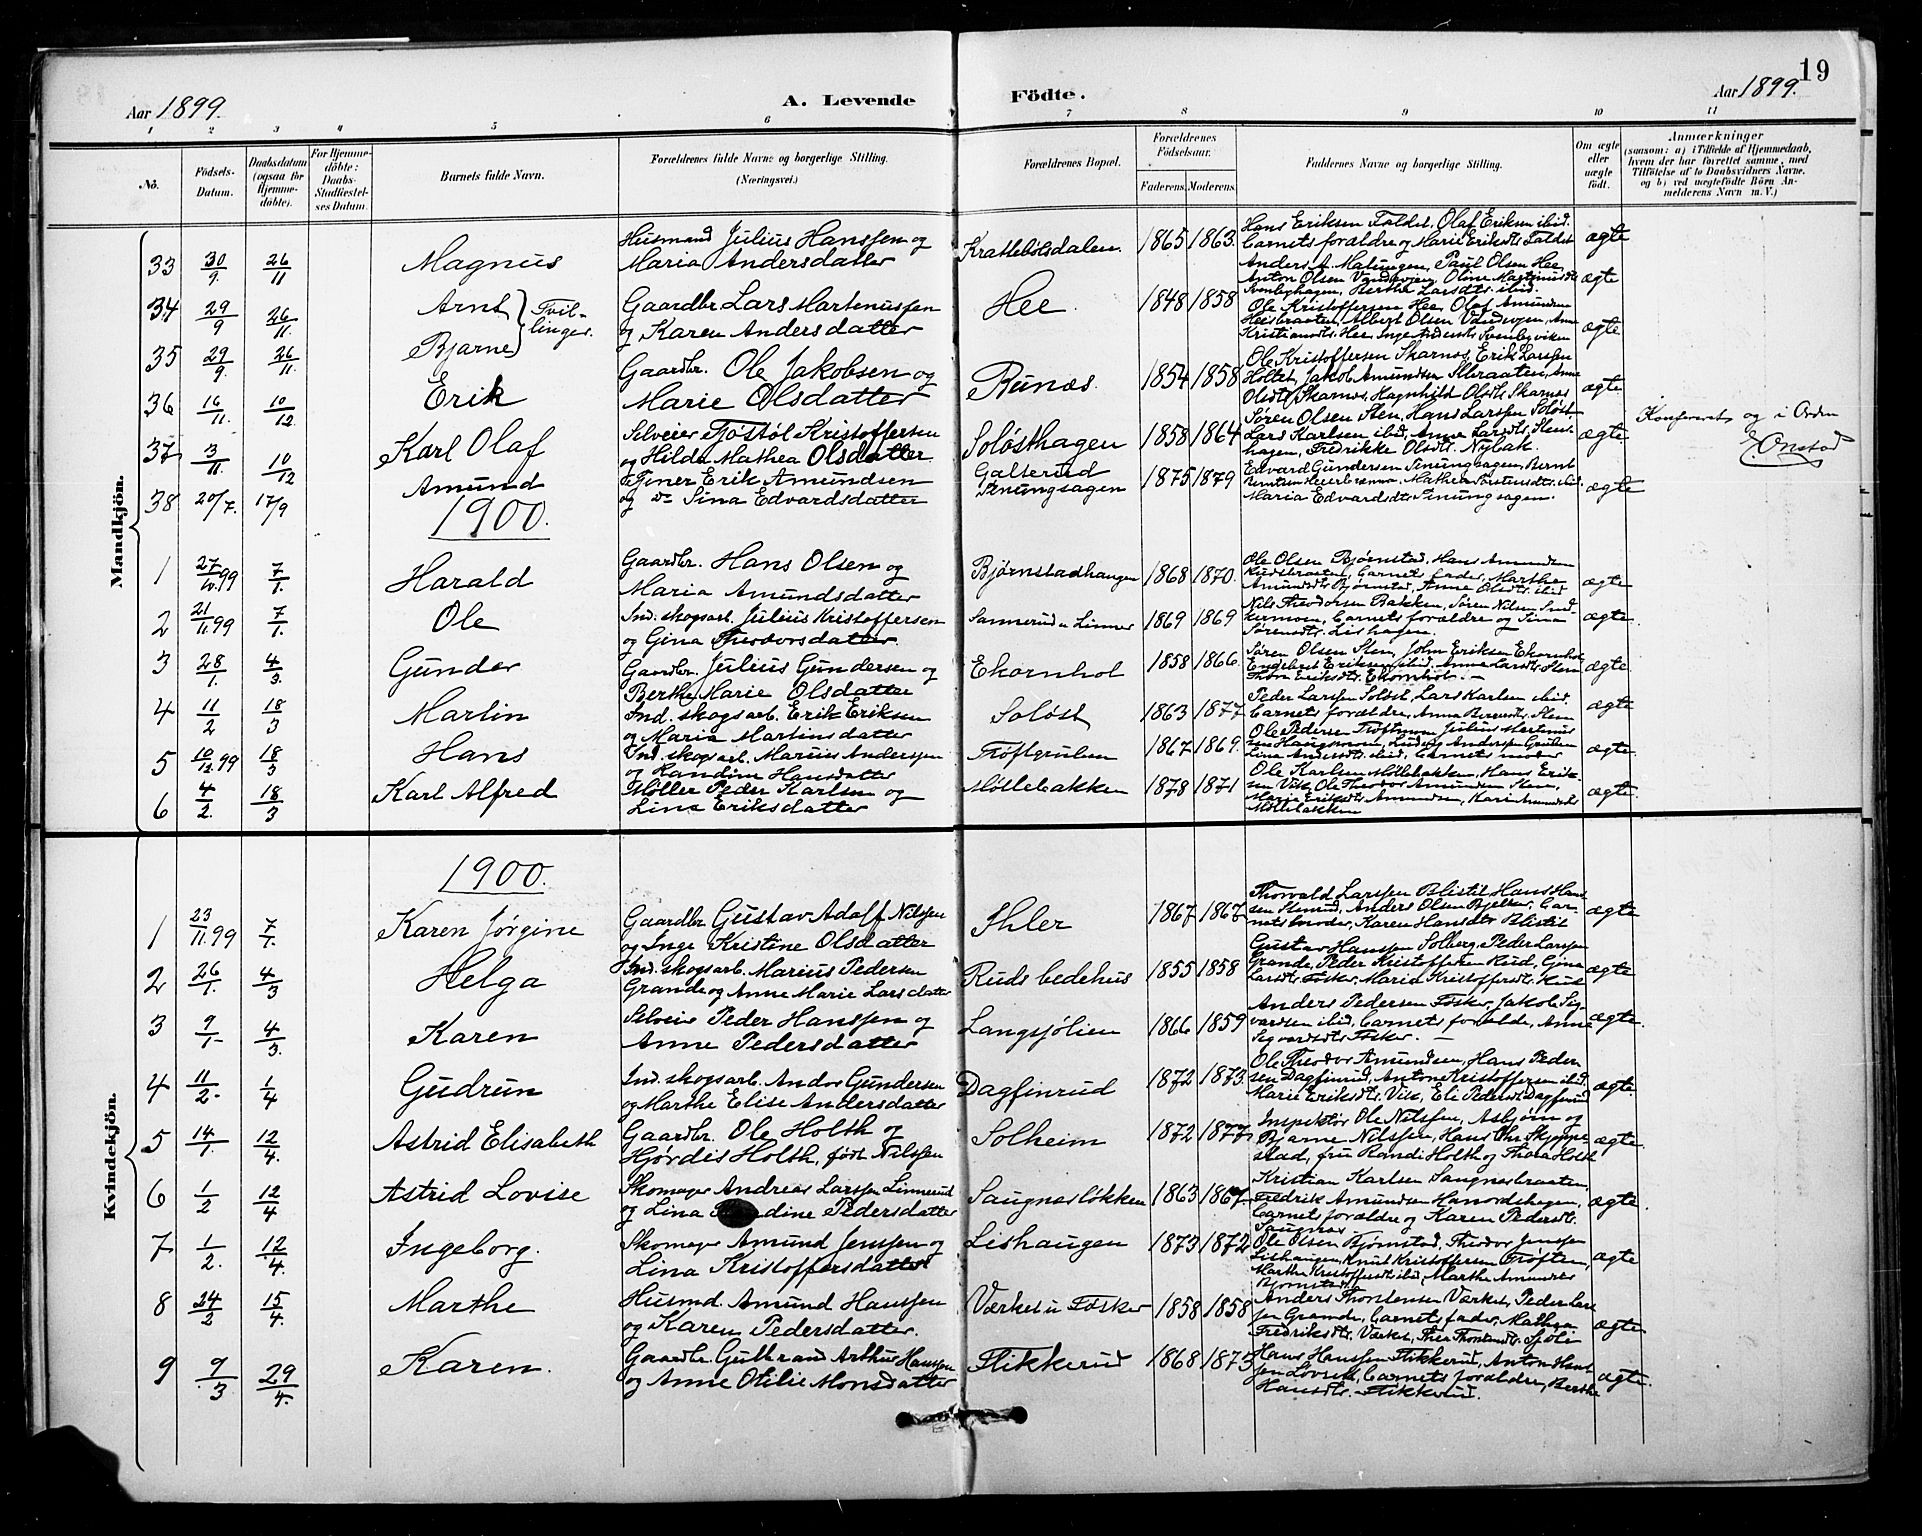 19
Aar 1899. A. Levende Födte. Aar 1899.
1 2 3 4 5 6 7 8 9 10 11
No. Födsels-Datum. Daabsdatum (ogsaa for Hjemme-döbte). For Hjemme-döbte: Daabs-Stadfæstel-ses Datum. Barnets fulde Navn. Forældrenes fulde Navne og borgerlige Stilling. (Næringsvei.) Forældrenes Bopæl. Forældrenes Födselsaar. Faderens. Moderens. Faddernes Navne og borgerlige Stilling. Om ægte eller uægte födt. Anmærkninger (saasom: a) i Tilfælde af Hjemmedaab, hvem der har forrettet samme, med Tilföielse af to Daabsvidners Navne. og b) ved uægtefödte Börn An-melderens Navn m. V.)
Mandkjön.
33 30/9. 26/11 Magnus Husmand Julius Hanssen og Maria Andersdatter 1865 1863. Hans Eriksen Faldet, Olaf Eriksen ibid. Barnets forældre og Marie Eriksdtr. Faldet ægte
34 29/9 26/11. Arnt } Tvil-linger. Gaardbr. Lars Martenussen og Karen Andersdatter Hee. 1848 1858 Anders A. Matungen, Paul Olsen Hee Anton Olsen ægte
35 29/9. 26/11. Bjarne Ole Kristoffersen Hee, Olaf Amundsen Albert Olsen ægte
36 16/11. 10/12 Erik Gaardbr. Ole Jakobsen og Marie Olsdatter Runæs. 1854 1858 Ole Kristoffersen Skarnæs, Erik Larssen Holtet, Jakob Amundsen ægte
37 3/11. 10/12 Karl Olaf Selveier Tjöstöl Kristoffersen og Hilda Mathea Olsdatter Solösthagen 1858 1864 Sören Olsen Sten, Hans Larssen Solöst Lars Karlsen ibid, Anne Larsdtr. Sten-hagen, Fredrikke Olsdtr. Nybak. ægte
Konfereret og i Orden
Onstad
38 20/7. 17/9 Amund Tjener Erik Amundsen og do Sina Edvardsdatter Galterud Sinungsagen 1875 1879 Edvard Gundersen Sinungsagen, Bernt Maria Edvardsdtr Sinungsagen. ægte
1900.
1 27/10.99 7/1. Harald Gaardbr. Hans Olsen og Maria Amundsdatter Bjørnstadhaugen 1868 1870. Ole Olsen Bjørnstad, Hans Amundsen Barnets fader, Marthe Amundsdtr Bjørnstad, Anne Olsdtr. ibid ægte
2 21/11.99 7/1. Ole Ind. skogsarb. Julius Kristoffersen og Gina Theodorsdatter Sannerud u Linner 1869 1869 Nils Theodorsen Bakken, Sören Nilsen Barnets forældre og Sina Sörensdtr. Lishagen. ægte.
3 28/1. 4/3. Gunder Gaardbr. Julius Gundersen og Berthe Marie Olsdatter Ekornhol 1858 1866. Sören Olsen Sten, John Eriksen Ekornhol Engebret Eriksen ibid, Anne Larsdtr. Sten Eriksdtr. Ekornhol. — ægte
4 11/2 18/3 Martin Ind. skogsarb. Erik Eriksen og Maria Martinsdatter Solöst 1863 1877 Peder Larssen Solöst, Lars Karlsen ibid. Barnets forældre, Anna Sten ægte
5 10/12.99 18/3 Hans Ind. skogsarb. Marius Anderssen og Handine Hansdatter Tröftgrulen 1867 1869. Ole Pedersen Tröftmoen, Julius Ludvig Andersen Grulen Lina Andersdtr ibid, Barnets moder ægte.
6 4/2. 18/3 Karl Alfred Möller Peder Karlsen og Lina Eriksdatter Möllebakken 1878 1871 Ole Karlsen Möllebakken, Hans Erik-sen Vik, Ole Theodor Amundsen Sten, Marie Eriksdtr Amundsen, Kari Amundsdtr Möllebakken ægte.
Kvindekjön.
1900.
1 23/11.99 7/1. Karen Jørgine Gaardbr Gustav Adolf Nilssen og Inge Kristine Olsdatter Ihler 1867 1867 Thorvald Larssen Blistil, Hans Han-sen Stenrud, Anders Olsen Bjelker, Bar-nets moder, Karen Hansdtr Blistil ægte
2 26/1. 4/3 Helga Ind. skogsarb. Marius Pedersen Grande og Anne Marie Larsdatter Ruds bedehus 1855 1858 Gustav Hanssen Solberg, Peder Larssen Grande, Peder Kristoffersen Rud, Gina Larsdtr. Fösker, Maria Kristoffersdtr. Rud ægte
3 9/1. 4/3. Karen Selveir Peder Hanssen og Anne Pedersdatter Langsjölien 1866 1859 Anders Pedersen Fösker, Jakob Sig-vardsen ibid, Barnets forælde, Anne Sigvardsdtr Fösker. — ægte.
4 11/2. 1/4 Gudrun Ind. skogsarb. Andor Gundersen og Marthe Elise Andersdatter Dagfinrud 1872 1873. Ole Theodor Amundsen, Hans Peder-sen Dagfinrud, Antone Kristoffersen ibid. Marie Eriksdtr. Vik, Eli Pedersdtr Dagfinrud ægte.
5 14/1. 12/4. Astrid Elisabeth Gaardbr. Ole Holth og Hjördis Holth, födt Nilssen Solheim 1872 1877. Inspektör Ole Nilssen, Asbjørn og Bjarne Nilssen, Hans Chr. Skjeppe-stad, fru Randi Holth og Thora Holth ægte.
6 1/2 12/4 Astrid Lovise Skomager Andreas Larssen Linnerud og Lina Pedersdatter Saugnæslökken 1863 1867. Kristian Karlsen Saugnæsbraaten, Fredrik Amundsen Barnets forældre og Karen Pedersdtr. Saugnæs ægte.
7 1/2. 12/4. Ingeborg. Skomager Amund Jenssen og Lina Kristoffersdatter Lishaugen 1873 1872 Ole Olsen Bjørnstad, Theodor Jenssen Lishaugen, Knud Kristoffersen Tröften, Marthe Kristoffersdtr ibid, Marthe Amundsdtr Bjørnstad ægte
8 24/2 15/4. Marthe Husmd. Amund Hanssen og Karen Pedersdatter. Værket u Fösker 1858 1858 Anders Thorstensen Værket, Peder Lars-sen Grande, Barnets fader, Mathea Fredriksdtr. Værket, Sjöli ægte
9 9/3 29/4. Karen. Gaardbr. Gulbrand Arthur Hanssen og Anne Otilie Monsdatter Flikkerud 1868 1875 Hans Hanssen Flikkerud, Anton Hans-sen Barnets forældre, Berthe Hansdtr. Flikkerud. ægte.